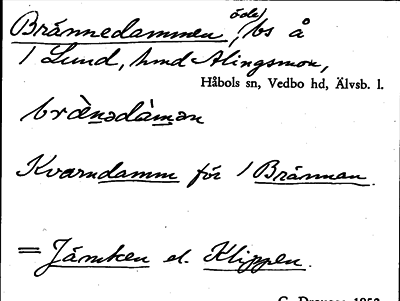 Brännedammen, öde, bs å
1 Lund, hmd Alingsmon,
Håbols sn, Vedbo hd, Älvsb. l.
bràǹədàmən
Kvarndamm för 1 Brännan.
= Järnken el. Klippen.